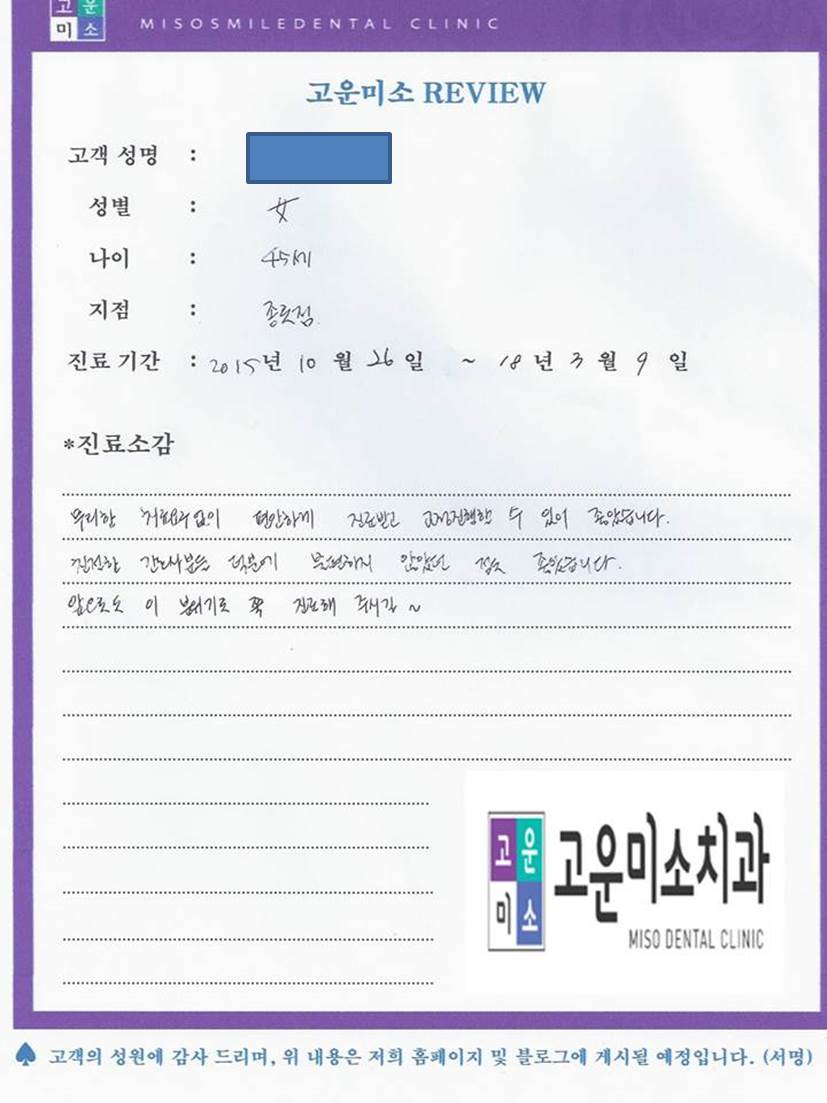 고운
미소
MISOSMILEDENTAL CLINIC
고운미소 REVIEW
고객 성명 :
성별 : 女
나이 : 45세
지점 : 종로점.
진료 기간 : 2015년 10 월 26 일 ~ 18 년 3 월 9 일
*진료소감
무리한 치료요구없이 편안하게 진료받고 교정진행할 수 있어 좋았습니다.
친절한 간호사분들 덕분에 불편하지 않았던 점도 좋았습니다.
앞으로도 이 분위기로 쭉 진료해 주시길 ~
고운
미소
고운미소치과
MISO DENTAL CLINIC
♠ 고객의 성원에 감사 드리며, 위 내용은 저희 홈페이지 및 블로그에 게시될 예정입니다. (서명)